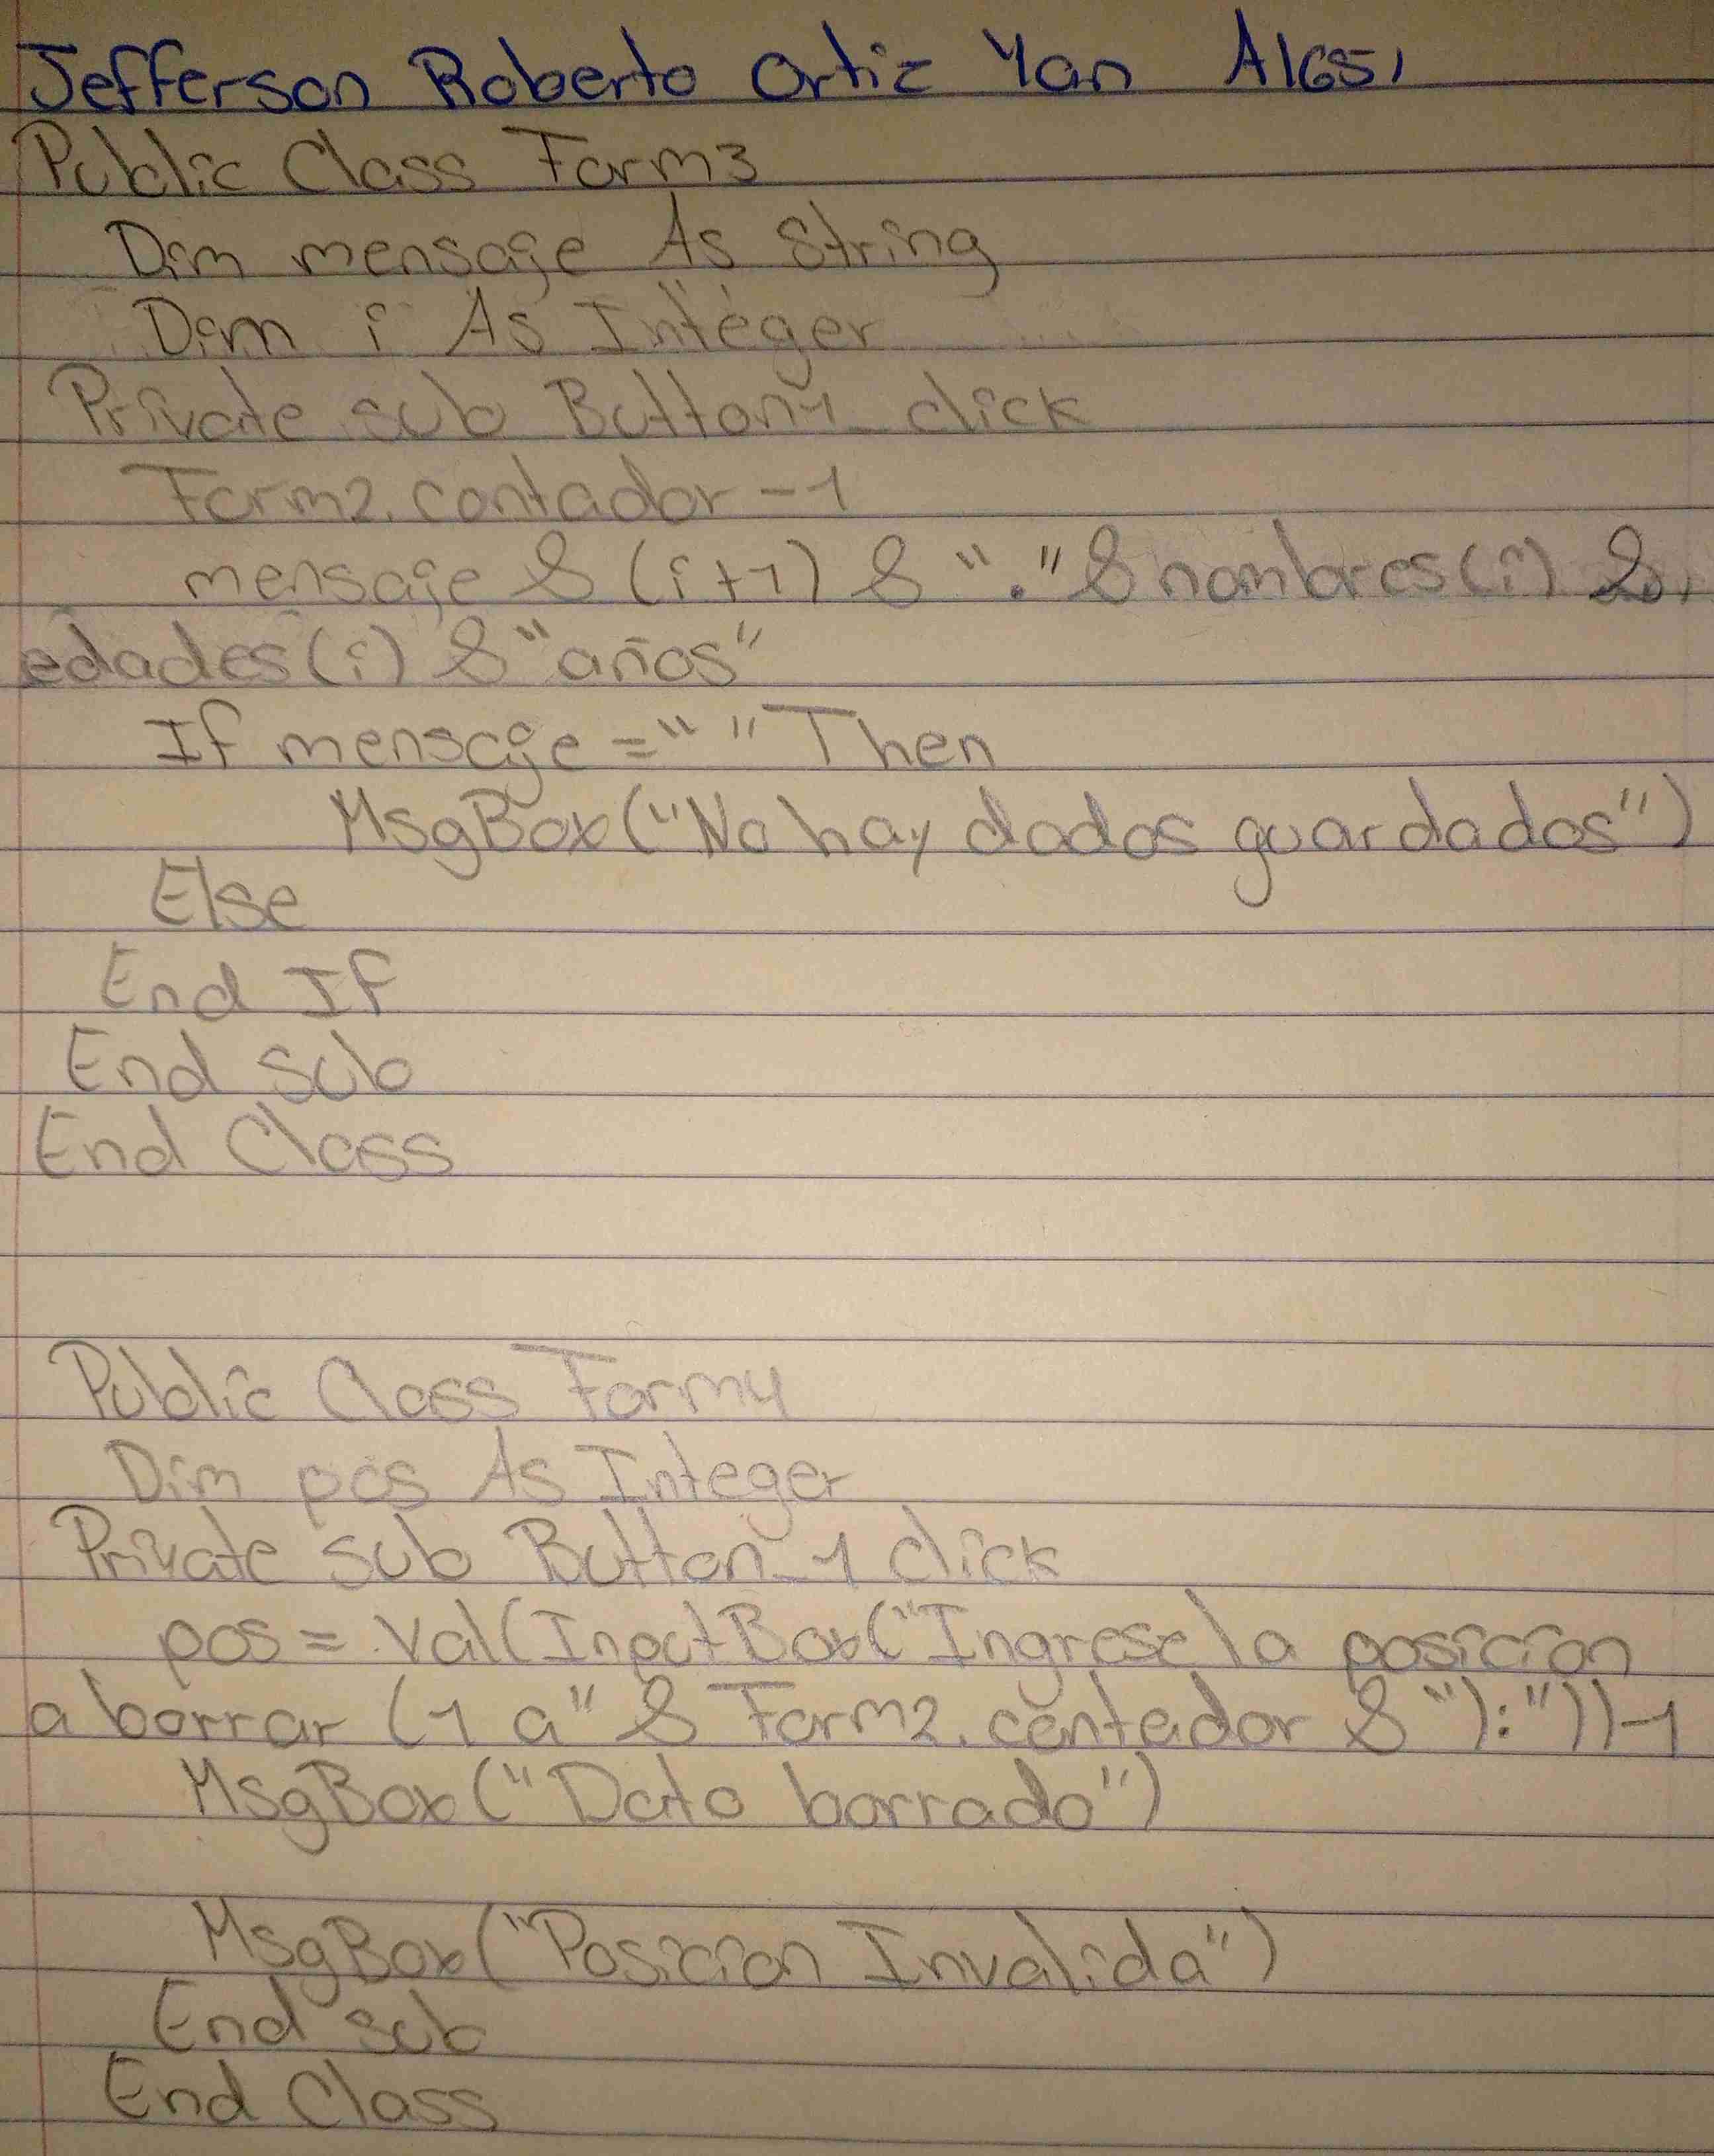 Jefferson Roberto Ortiz Yan A1651
Public Class Form3
Dim mensaje As String
Dim i As Integer
Private sub Button1_click
Form2.contador -1
mensaje & (i+1) & "." & nombres(i) &
edades(i) & "años"
If mensaje = " " Then
MsgBox("No hay dados guardados")
Else
End If
End sub
End Class
Public Class Form4
Dim pos As Integer
Private sub Button_1 click
pos = Val(InputBox("Ingrese la posicion
a borrar (1 a" & Form2.contador & "):"))-1
MsgBox("Dato borrado")
MsgBox("Posicion Invalida")
End sub
End Class